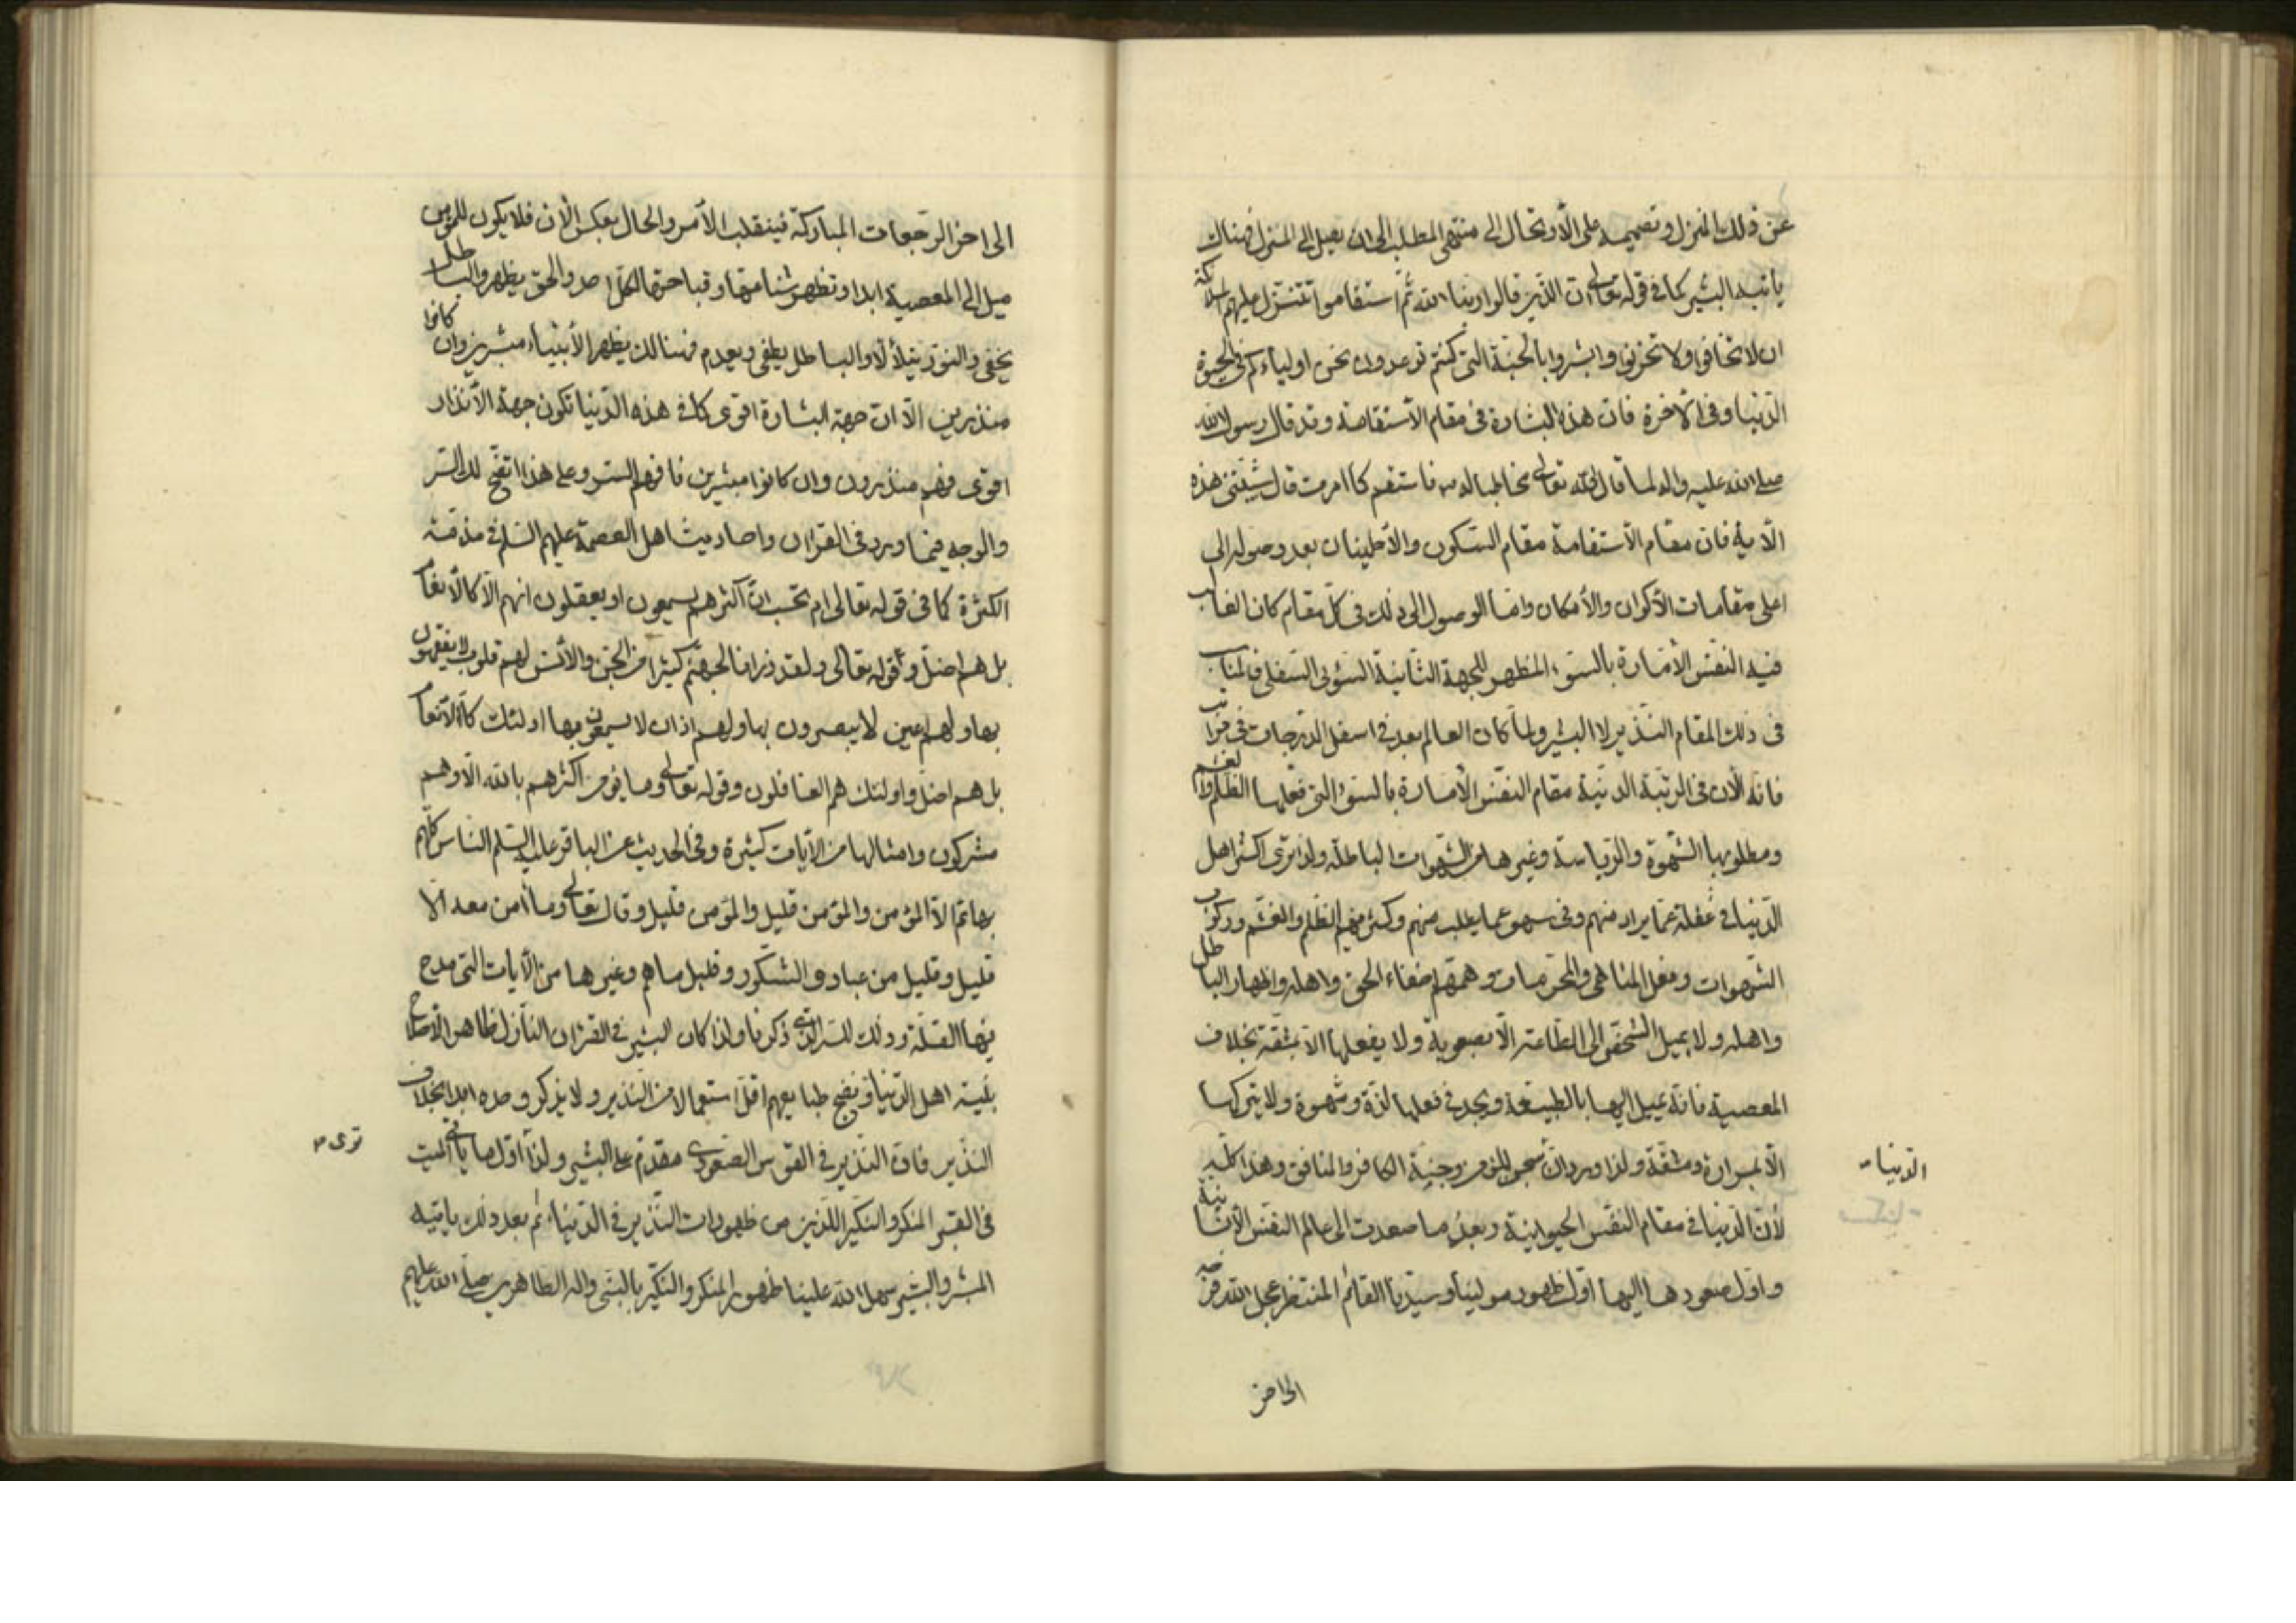 عن ذلك المنزل وتصميمه على الارتحال الى منتهى المطلب الى ان يصل الى المنزل فهناك
ياتيه البشير كما في قوله تعالى ان الذين قالوا ربنا الله ثم استقاموا تتنزل عليهم الملائكة
ان لا تخافوا ولا تحزنوا وابشروا بالجنة التي كنتم توعدون نحن اولياءكم في الحيوة
الدنيا وفي الاخرة فان هذه البشارة في مقام الاستقامة وقد قال رسول الله
صلى الله عليه واله لما قال الله تعالى مخاطبا له فاستقم كما امرت قال شيبتني هذه
الآية فان مقام الاستقامة مقام السكون والاطمينان بعد وصوله الى
اعلى مقامات الاكوان والامكان واما الوصول الى ذلك في كل مقام كان الغالب
فيه النفس الامارة بالسوء المظهر للجهة الثانية السؤىٰ السفلى فالمناسب
في ذلك المقام النذير لا البشير ولما كان العالم بعد في اسفل الدرجات
فانه الان في الرتبة الدنية مقام النفس الامارة بالسوء التي فعلها الظلم والغشم
ومطلوبها الشهوة والرياسة وغيرها من الشهوات الباطلة ولذا ترى اكثر اهل
الدنيا في غفلة عما يراد منهم وفي سهو عما يطلب منهم وكثر فيهم الظلم والغشم وركوب
الشهوات وفعل المناهي والمحرمات وهمهم اخفاء الحق واهله واظهار الباطل
واهله ولا يميل الشخص الى الطاعة الا بصعوبة ولا يفعلها الا بمشقة بخلاف
المعصية فانه يميل اليها بالطبيعة ويجد في فعلها لذة وشهوة ولا يتركها
الا بمرارة ومشقة ولذا ورد ان سجن المؤمن وجنة الكافر والمنافق وهذا كله
الدنيا
لان الدنيا في مقام النفس الحيوانية وبعد ما صعدت الى عالم النفس الانسانية
واول صعودها اليها اول ظهور مولينا وسيدنا القائم المنتظر عجل الله فرجه
الى اخر
الى اخر الرجعات المباركة فينقلب الامر والحال بعكس الان فلا يكون للمؤمن
ميل الى المعصية ابدا وتظهر شناعتها وقباحتها لكل احد والحق يظهر والباطل
يخفى والنور يتلألأ والباطل يطفى ويعدم فهنالك يظهر الانبياء مبشرين وان كانوا
منذرين الا ان جهة البشارة اقوى كما في هذه الدنيا تكون جهة الانذار
اقوى فهم منذرون وان كانوا مبشرين فافهم السر وعلى هذا اتضح لك السر
والوجه فيما ورد في القران واحاديث اهل العصمة عليهم السلم في مذمة
الكثرة كما في قوله تعالى ام تحسب ان اكثرهم يسمعون او يعقلون ان هم الا كالانعام
بل هم اضل وقوله تعالى ولقد ذرانا لجهنم كثيرا من الجن والانس لهم قلوب لا يفقهون
بها ولهم اعين لا يبصرون بها ولهم اذان لا يسمعون بها اولئك كالانعام
بل هم اضل واولئك هم الغافلون وقوله تعالى وما يؤمن اكثرهم بالله الا وهم
مشركون وامثالها من الآيات كثيرة وفي الحديث عن الباقر عليه السلم الناس كلهم
بهائم الا المؤمن والمؤمن قليل والمؤمن قليل وقال تعالى وما امن معه الا
قليل وقليل من عبادي الشكور وقليل ما هم وغيرها من الآيات التي مدح
فيها القلة وذلك للسر الذي ذكرنا ولذا كان البشير في القران النازل لظاهر الاصلاح
بلية اهل الدنيا ونضج طبايعهم اقل استعمالا من النذير ولا يذكر وحده ابدا بخلاف
النذير فان النذير في القوس الصعودي مقدم على البشير ولذا اول ما ياتي الميت
ترى
في القبر المنكر والنكير اللذين من ظهورات النذير في الدنيا ثم بعد ذلك ياتيه
المبشر والبشير سهل الله علينا ظهور المنكر والنكير بالنبي واله الطاهرين صلى الله عليهم